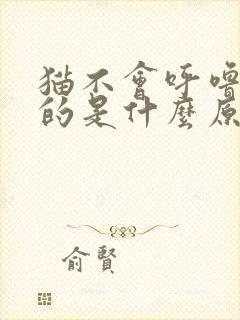 猫不會呼嚕
的是什麼原
俞賢